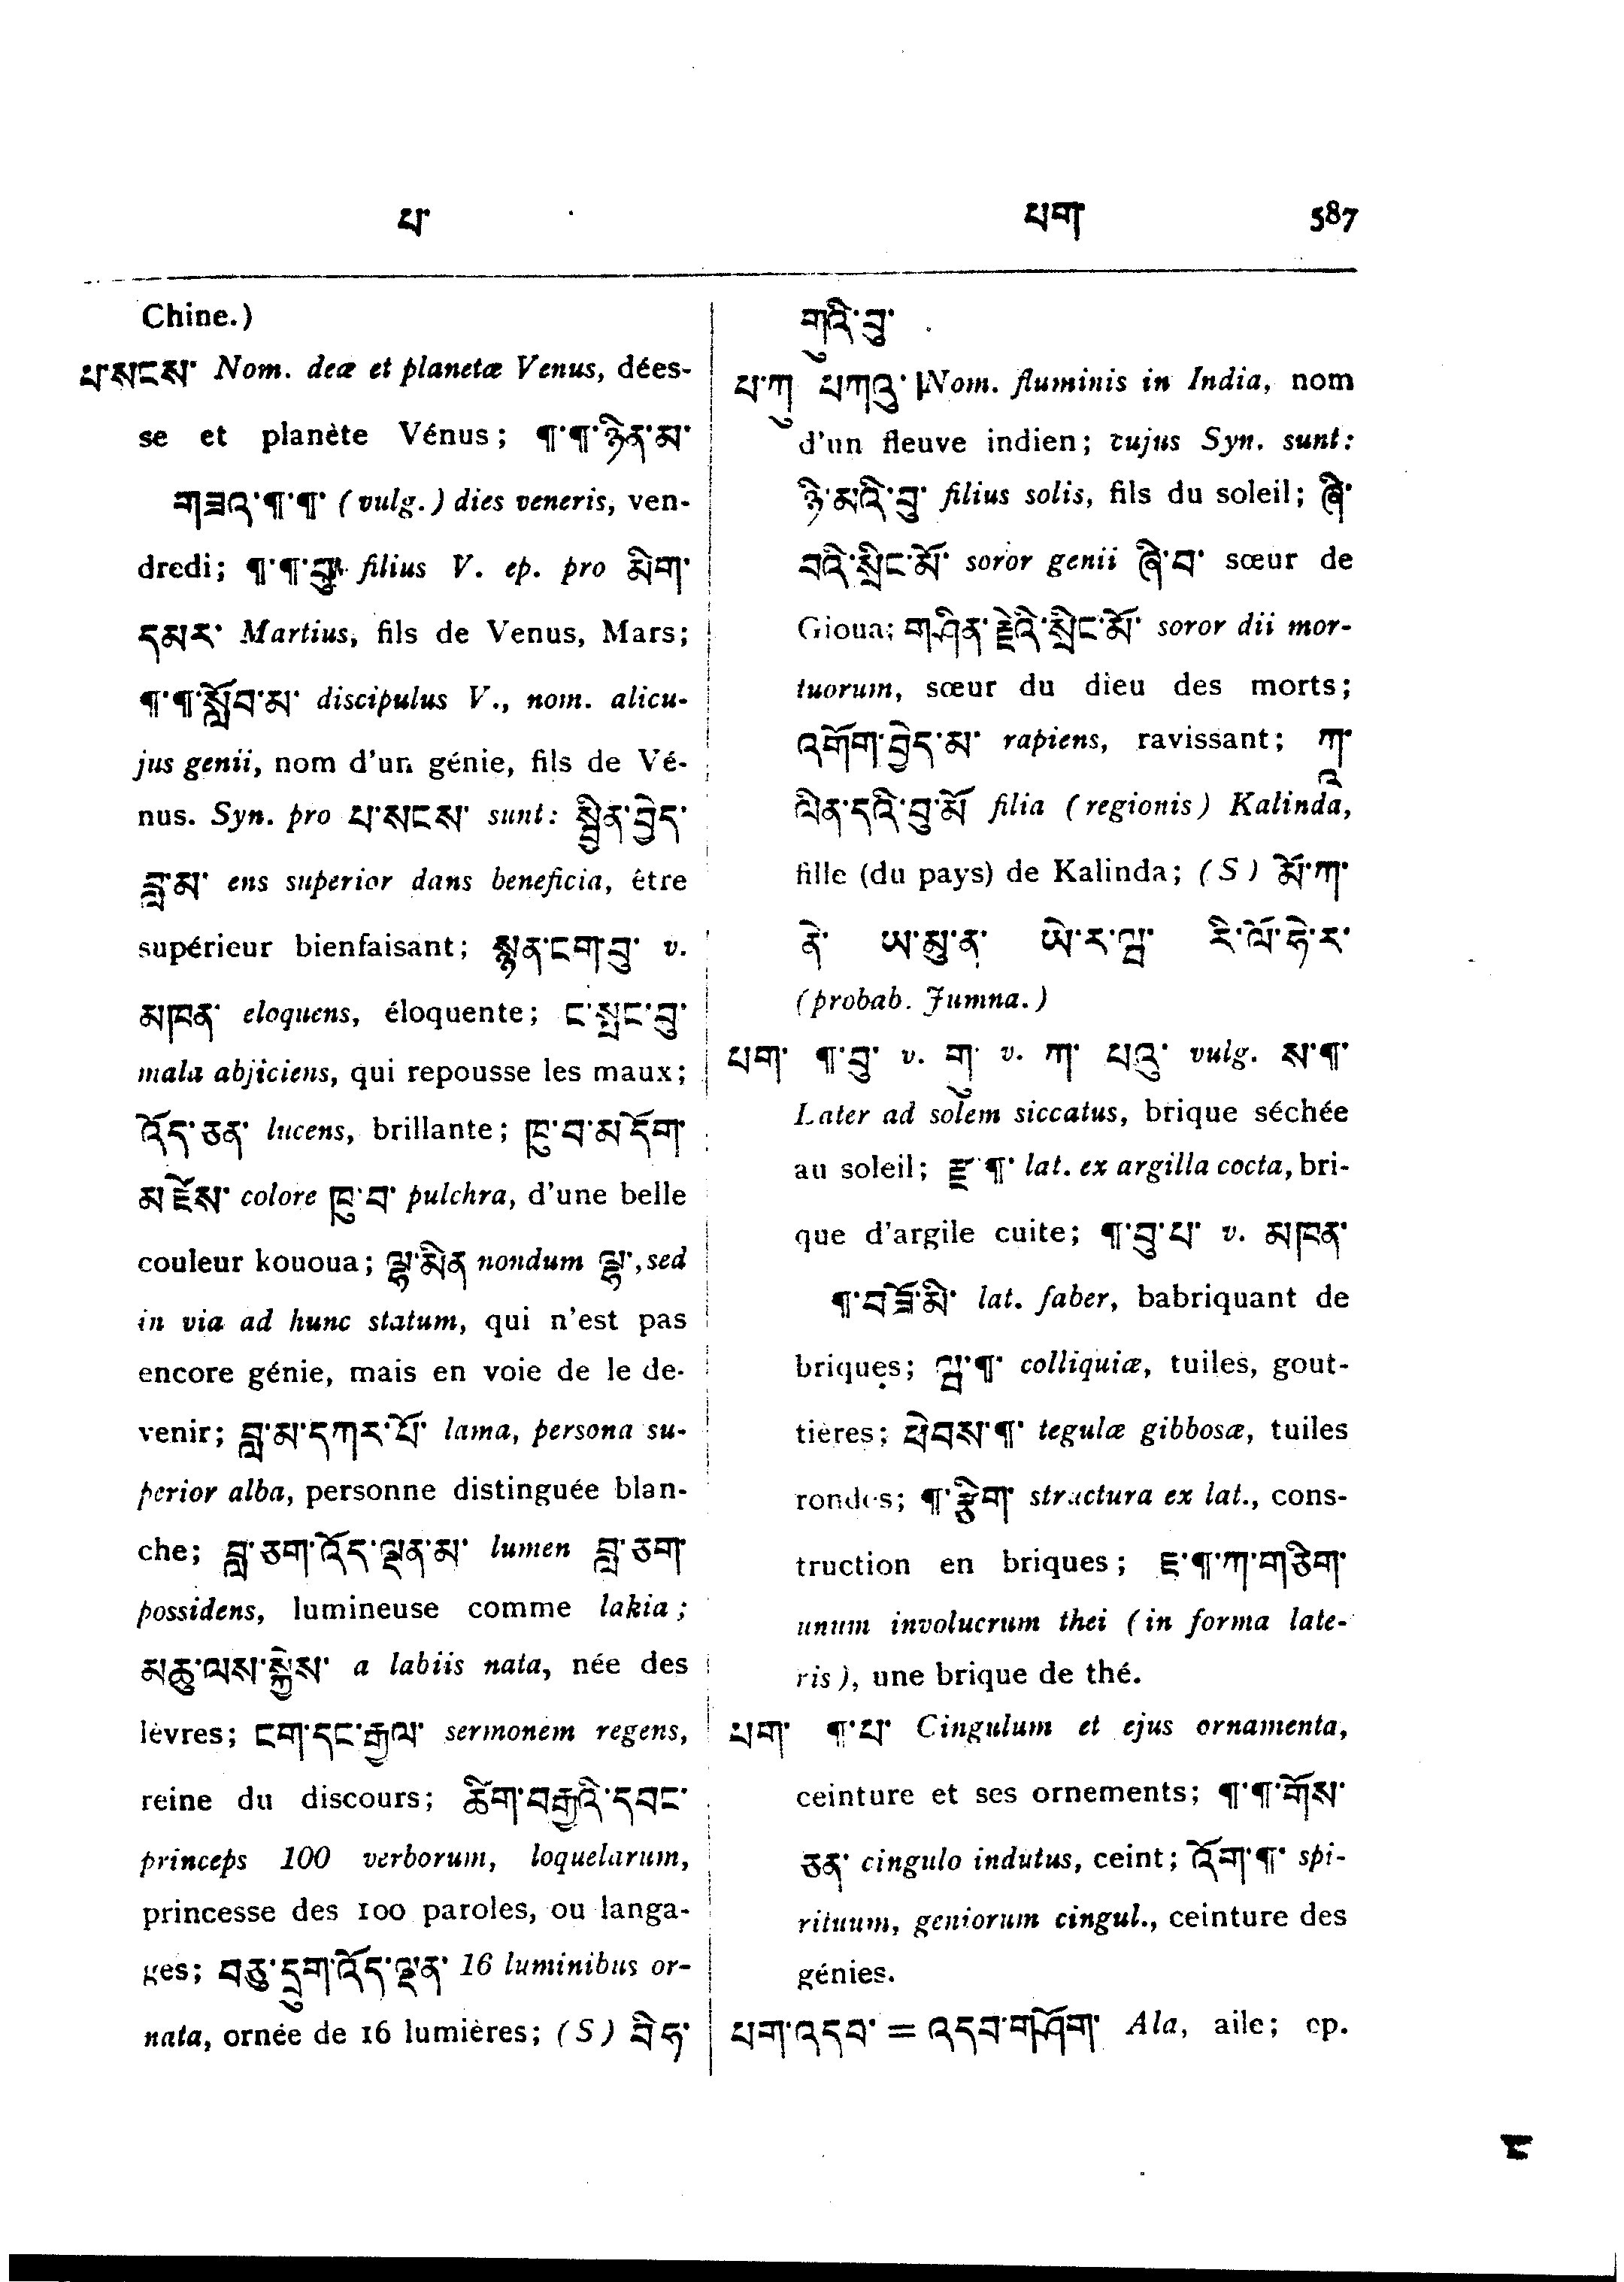 པ་
པག
587
Chine.)
པ་སངས་ Nom. deæ et planetæ Venus, dées-
se et planète Vénus; ¶་¶་ཉིན་མ་
གཟའ་¶་¶་ (vulg.) dies veneris, ven-
dredi; ¶་¶་བུ་ filius V. ep. pro མིག་
དམར་ Martius, fils de Venus, Mars;
¶་¶་སློབ་མ་ discipulus V., nom. alicu-
jus genii, nom d'un génie, fils de Vé-
nus. Syn. pro པ་སངས་ sunt: སྦྱིན་བྱེད་
བླ་མ་ ens superior dans beneficia, être
supérieur bienfaisant; སྙན་ངག་བུ་ v.
མཁན་ eloquens, éloquente; ང་སྤང་བུ་
mala abjiciens, qui repousse les maux;
འོད་ཅན་ lucens, brillante; ཁུ་བ་མདོག་
མཛེས་ colore ཁུ་བ་ pulchra, d'une belle
couleur kououa; ལྷ་མིན nondum ལྷ་, sed
in via ad hunc statum, qui n'est pas
encore génie, mais en voie de le de-
venir; བླ་མ་དཀར་པོ་ lama, persona su-
perior alba, personne distinguée blan-
che; བླ་ཅག་འོད་ལྡན་མ་ lumen བླ་ཅག་
possidens, lumineuse comme lakia;
མཆུ་ལས་སྐྱེས་ a labiis nata, née des
lèvres; ངག་དང་རྒྱལ་ sermonem regens,
reine du discours; ཚིག་བརྒྱའི་དབང་
princeps 100 verborum, loquelarum,
princesse des 100 paroles, ou langa-
ges; བཅུ་དྲུག་འོད་ལྡན་ 16 luminibus or-
nata, ornée de 16 lumières; (S) བིཧ་
གུའི་བུ་
པ་ཀུ པཀའུ་ Nom. fluminis in India, nom
d'un fleuve indien; cujus Syn. sunt:
ཉི་མའི་བུ་ filius solis, fils du soleil; ཞི་
བའི་སྲིང་མོ་ soror genii ཞི་བ་ sœur de
Gioua; གཤིན་རྗེའི་སྲིང་མོ་ soror dii mor-
tuorum, sœur du dieu des morts;
འགོག་བྱེད་མ་ rapiens, ravissant; ཀཱ་
ལིན་དའི་བུ་མོ filia (regionis) Kalinda,
fille (du pays) de Kalinda; (S) མོ་ཀ་
ནེ་ ཡ་མུ་ན་ ཡེ་ར་ལྦ་ རི་ལོ་ཧེ་ར་
(probab. Jumna.)
པག་ ¶་བུ་ v. གུ་ v. ཀ་ པའུ་ vulg. ས་¶་
Later ad solem siccatus, brique séchée
au soleil; རྫ་¶་ lat. ex argilla cocta, bri-
que d'argile cuite; ¶་བུ་པ་ v. མཁན་
¶་བཟོ་མི་ lat. faber, babriquant de
briques; ལྦ་¶་ colliquiæ, tuiles, gout-
tières; ཕེབས་¶་ tegulæ gibbosæ, tuiles
rondes; ¶་རྩིག་ structura ex lat., cons-
truction en briques; ཇ་¶་ཀ་གཅིག་
unum involucrum thei (in forma late-
ris), une brique de thé.
པག་ ¶་པ་ Cingulum et ejus ornamenta,
ceinture et ses ornements; ¶་¶་གོས་
ཅན་ cingulo indutus, ceint; འོག་¶་ spi-
rituum, geniorum cingul., ceinture des
génies.
པག་འདབ་ = འདབ་གཤོག་ Ala, aile; ep.